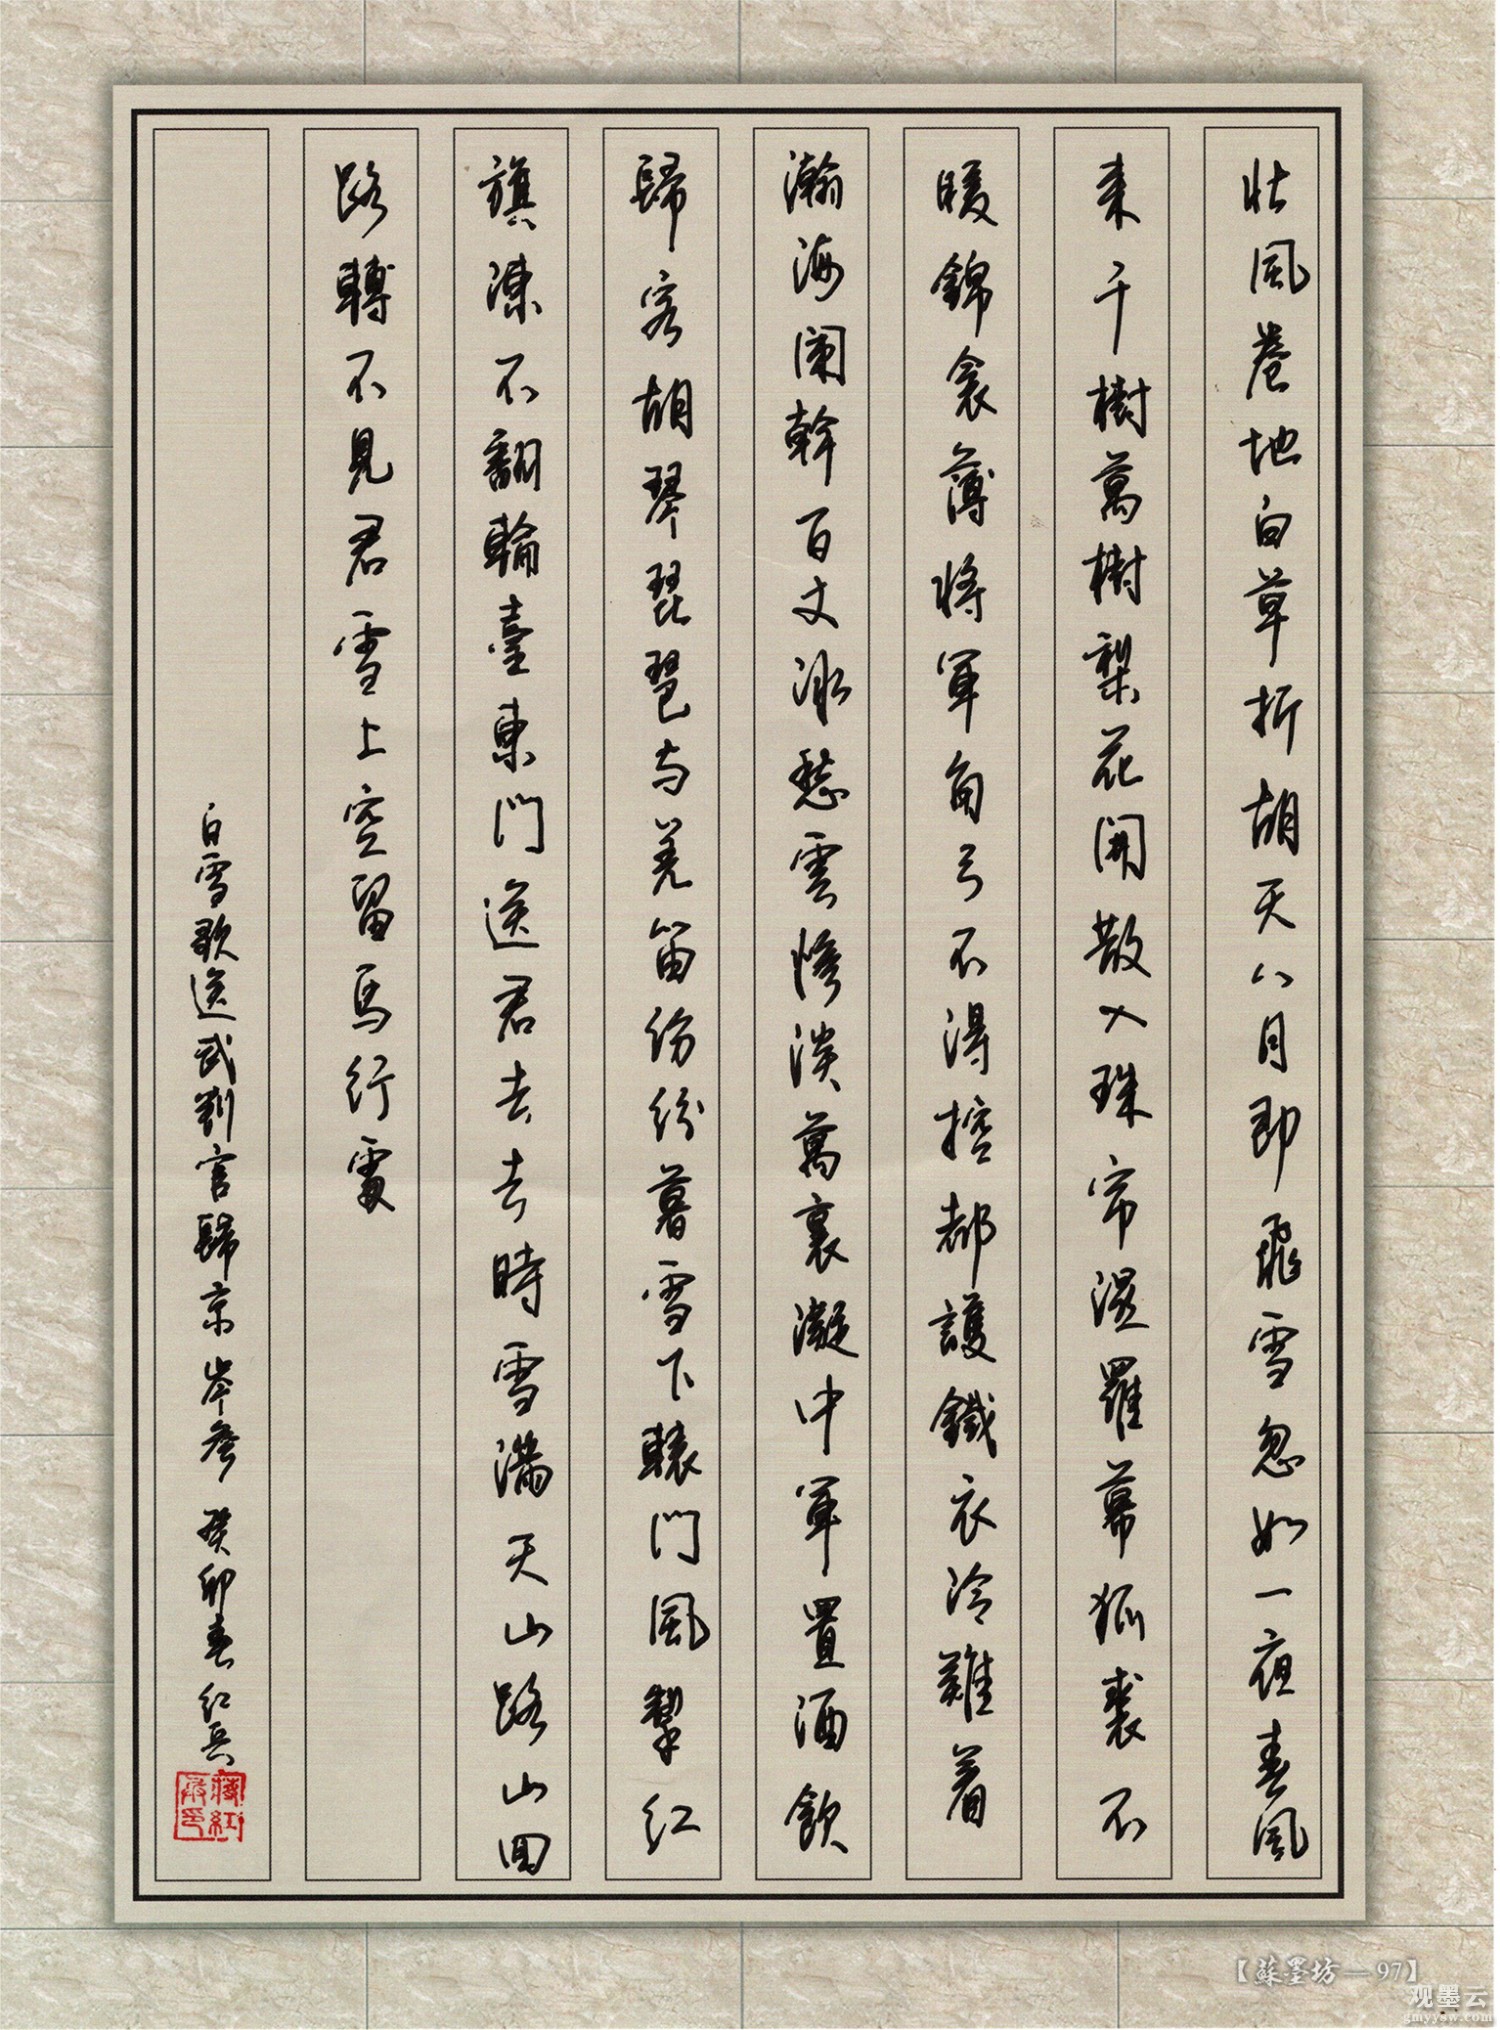 北風卷地白草折胡天八月即飛雪忽如一夜春風
来千樹萬樹梨花開散入珠帘濕羅幕狐裘不
暖錦衾薄将軍角弓不得控都護鐵衣冷難着
瀚海闌幹百丈冰愁雲惨淡萬裏凝中軍置酒飲
歸客胡琴琵琶与羌笛纷纷暮雪下轅門風掣红
旗凍不翻輪臺東門送君去去時雪满天山路山回
路轉不見君雪上空留馬行處
白雪歌送武判官歸京岑参癸卯春红兵
【蘇墨坊—97】
观墨云
gmyysw.com